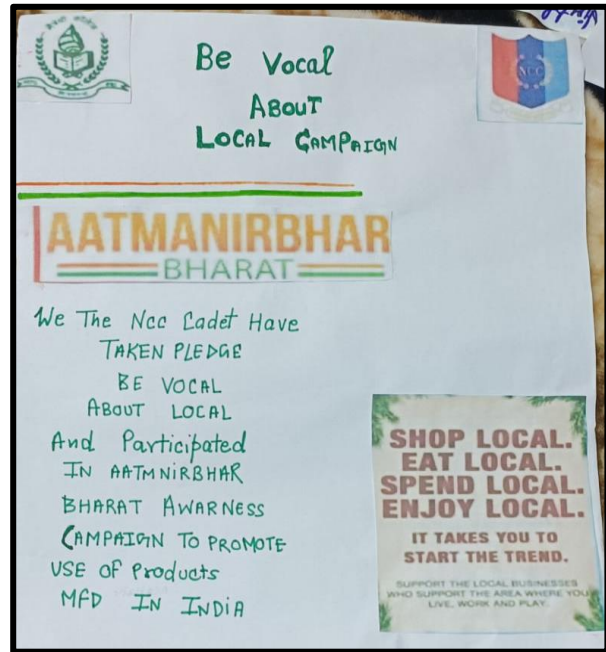 Be Vocal
ABOUT
LOCAL CAMPAIGN
NCC
AATMANIRBHAR
BHARAT
We The Ncc Cadet Have
TAKEN PLEDGE
BE VOCAL
ABOUT LOCAL
And Participated
IN AATMNiRBHAR
BHARAT AWARNESS
CAMPAIGN TO PROMOTE
USE OF Products
MFD IN INDiA
SHOP LOCAL.
EAT LOCAL.
SPEND LOCAL.
ENJOY LOCAL.
IT TAKES YOU TO
START THE TREND.
SUPPORT THE LOCAL BUSINESSES
WHO SUPPORT THE AREA WHERE YOU
LIVE, WORK AND PLAY.